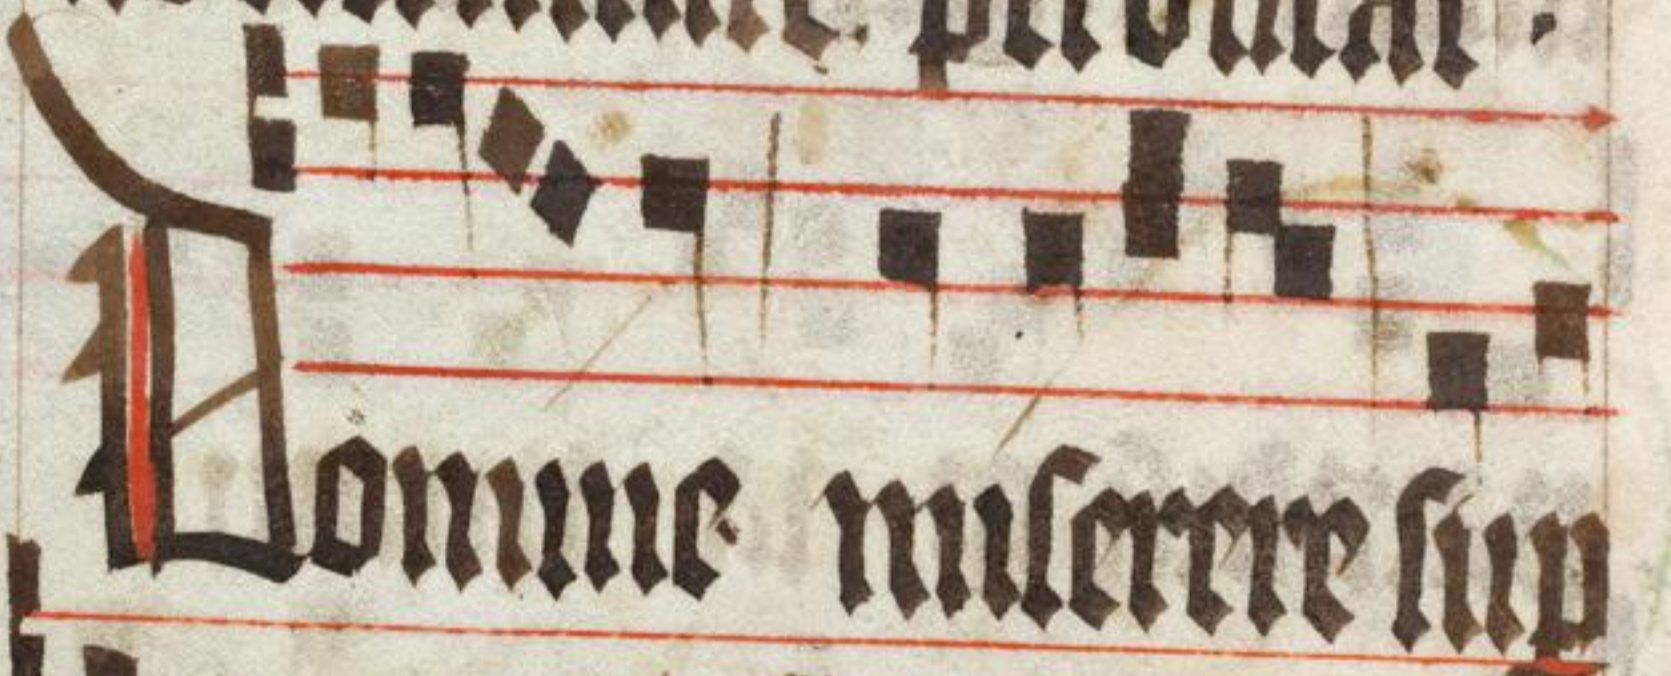 Domine miserere sup